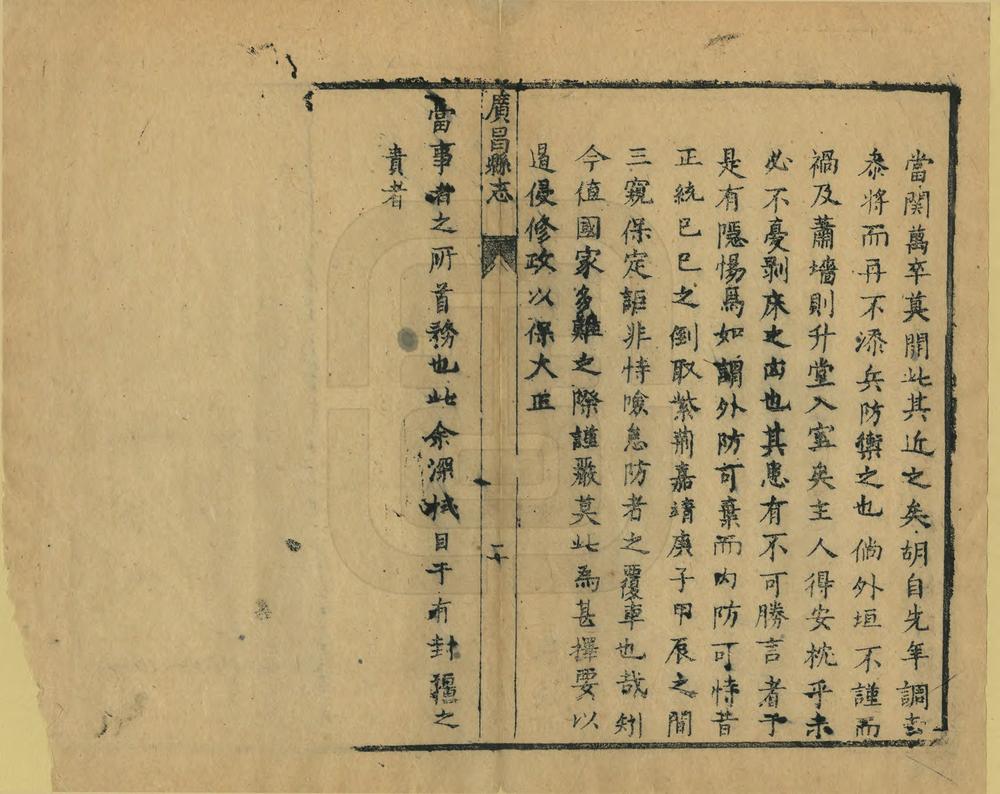 當関萬卒莫開此其近之矣胡自先年調去
叅將而再不添兵防禦之也倘外垣不謹而
禍及蕭墻則升堂入室矣主人得安枕乎未
必不憂剥床之凶也其患有不可勝言者予
是有隱惕焉如謂外防可棄而内防可恃昔
正統已巳之倒取紫荊嘉靖庚子甲辰之間
三窺保定詎非恃險怠防者之覆車也哉矧
今值國家多難之際謹嚴莫此為甚擇要以
遏侵修政以保大正
廣昌縣志
二十
當事者之所首務也此余深拭目于有封疆之
責者